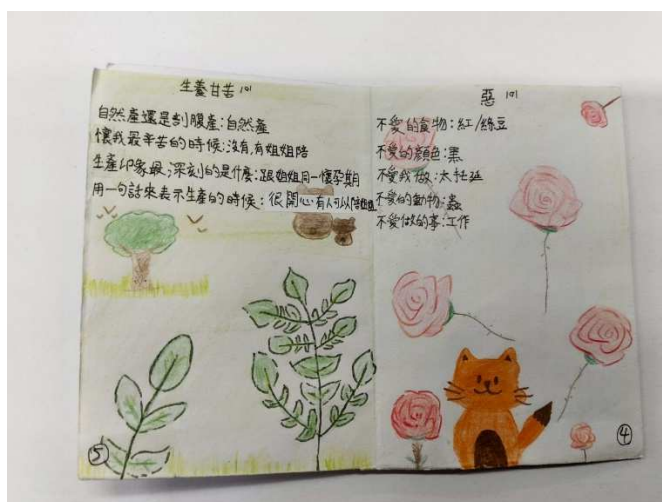 生養甘苦101
自然產還是剖腹產:自然產
懷我最辛苦的時候:沒有,有姐姐陪
生產印象最深刻的是什麼:跟姐姐同一懷孕期
用一句話來表示生產的時候:很開心有人可以陪
⑤
惡101
不愛的食物:紅/綠豆
不愛的顏色:黑
不愛我做:太拖延
不愛的動物:蟲
不愛做的事:工作
④